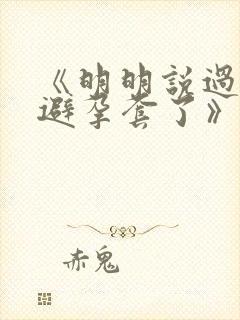 《明明說過
避孕套了》
赤鬼